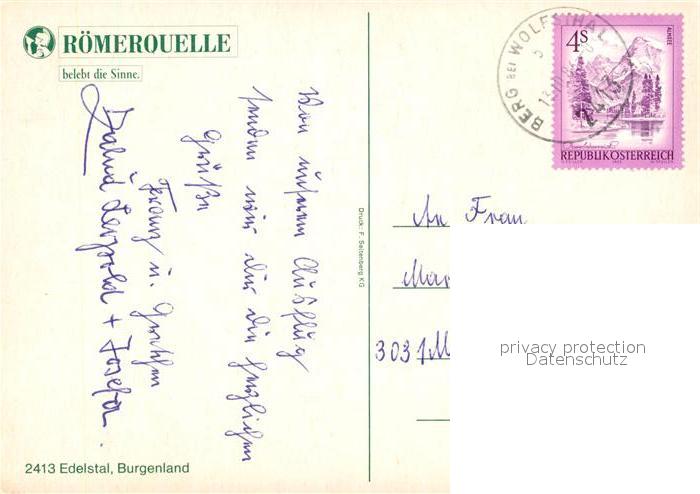 RÖMERQUELLE
belebt die Sinne.
Von unserem Ausflug
senden wir dir die herzlichen
Grüße
Franz u. Gretchen
Leopold + Josefa.
2413 Edelstal, Burgenland
Druck: F. Seitenberg KG
BERG BEI WOLFSTHAL
2413
4S
ALMSEE
REPUBLIK ÖSTERREICH
An Frau
Mar
3031 M
privacy protection
Datenschutz